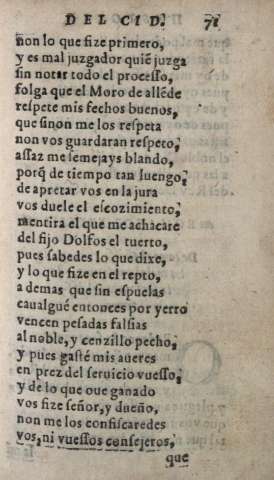 DEL CID. 71
non lo que fize primero,
y es mal juzgador quiẽ juzga
sin notar todo el processo,
folga que el Moro de allẽde
respete mis fechos buenos,
que sinon me los respeta
non vos guardaran respeto,
assaz me semejays blando,
porq̃ de tiempo tan luengo,
de apretar vos en la jura
vos duele el escozimiento,
mentira el que me achacare
del fijo Dolfos el tuerto,
pues sabedes lo que dixe,
y lo que fize en el repto,
a demas que sin espuelas
caualguẽ entonces por yerro
vencen pesadas falsias
al noble, y cenzillo pecho,
y pues gastẽ mis aueres
en prez del seruicio vuesso,
y de lo que oue ganado
vos fize señor, y dueño,
non me los confiscaredes
vos, ni vuessos consejeros,
que